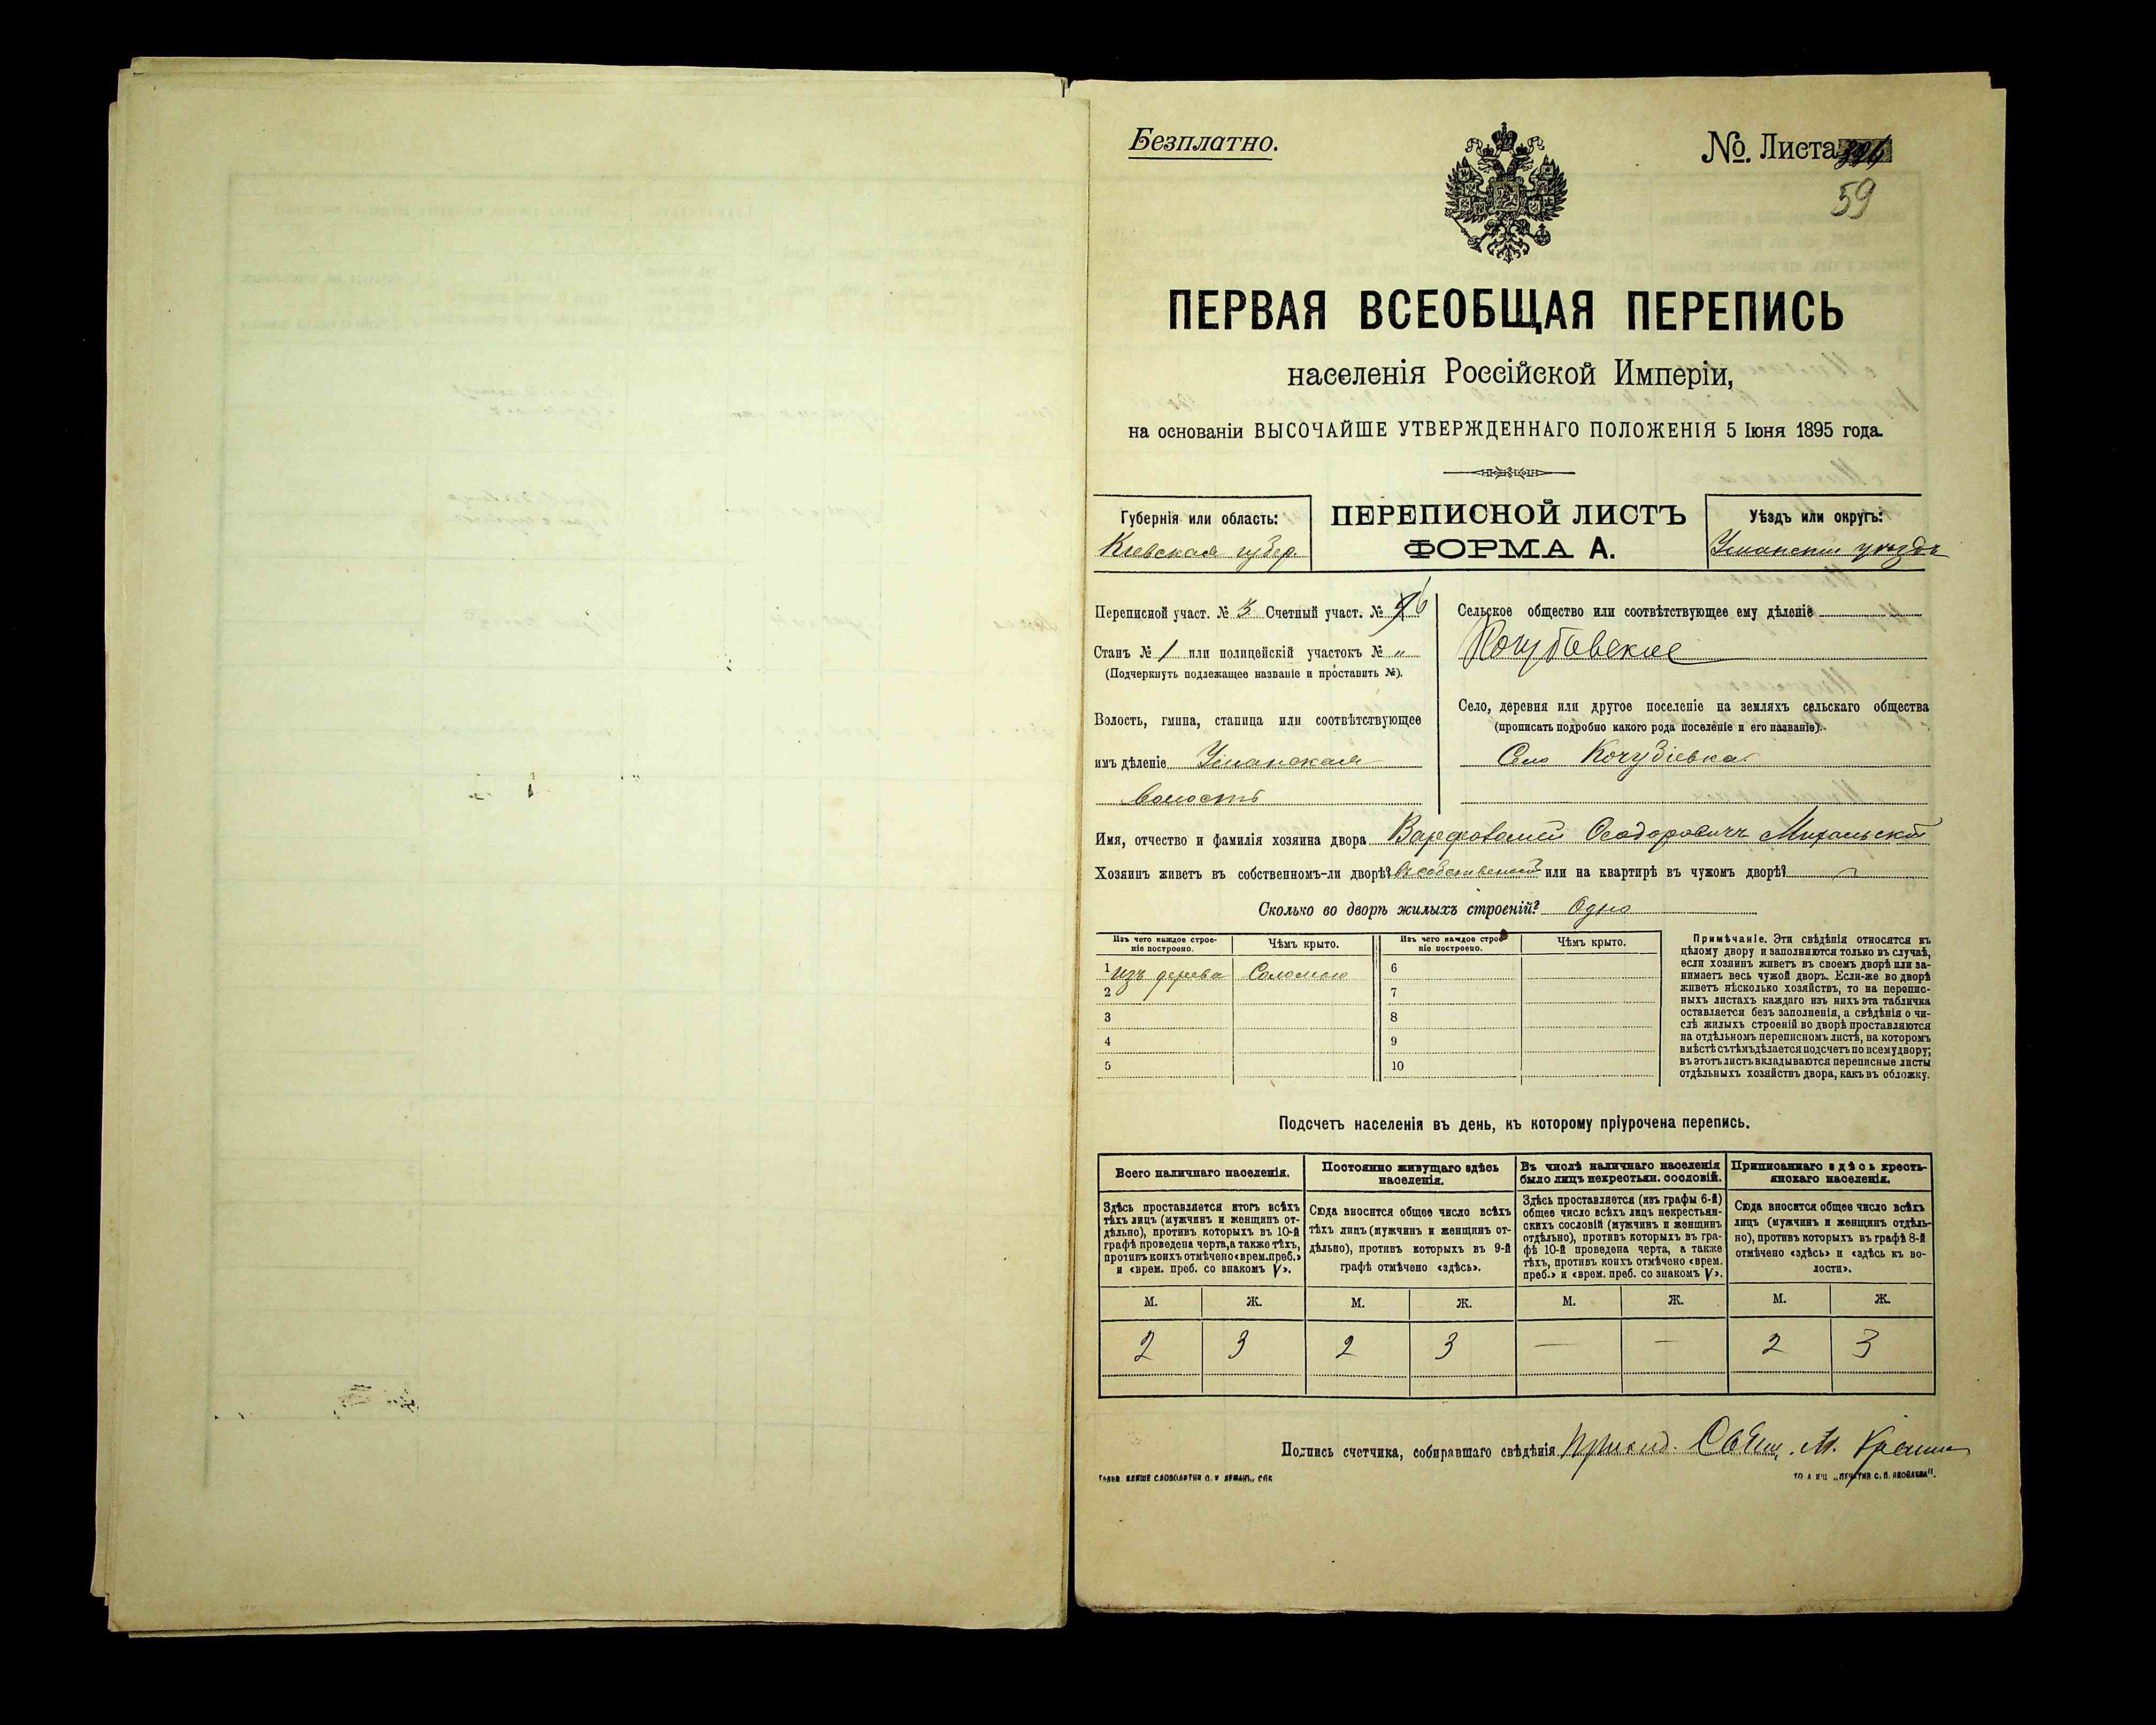 Безплатно.
№. Листа
59
ПЕРВАЯ ВСЕОБЩАЯ ПЕРЕПИСЬ
населенія Россійской Имперіи,
на основаніи ВЫСОЧАЙШЕ УТВЕРЖДЕННАГО ПОЛОЖЕНІЯ 5 Іюня 1895 года.
Губернія или область:
Кіевская губер.
ПЕРЕПИСНОЙ ЛИСТЪ
ФОРМА А.
Уѣздъ или округъ:
Уманскій уѣздъ
Переписной участ. № 3 Счетный участ. № 6
Станъ № 1 или полицейскій участокъ № „
(Подчеркнуть подлежащее названіе и проставить №).
Волость, гмина, станица или соотвѣтствующее
имъ дѣленіе Уманская
волость
Сельское общество или соотвѣтствующее ему дѣленіе
Кочубіевское
Село, деревня или другое поселеніе на земляхъ сельскаго общества
(прописать подробно какого рода поселеніе и его названіе).
Село Кочубіевка
Имя, отчество и фамилія хозяина двора Варфоломей Ѳеодоровичъ Михальскій
Хозяинъ живетъ въ собственномъ-ли дворѣ? въ собственномъ или на квартирѣ въ чужомъ дворѣ?
Сколько во дворѣ жилыхъ строеній? Одно
Изъ чего каждое строе-
ніе построено.
Чѣмъ крыто.
Изъ чего каждое строе-
ніе построено.
Чѣмъ крыто.
1 изъ дерева Соломою
2
3
4
5
6
7
8
9
10
Примѣчаніе. Эти свѣдѣнія относятся къ
цѣлому двору и заполняются только въ случаѣ,
если хозяинъ живетъ въ своемъ дворѣ или за-
нимаетъ весь чужой дворъ. Если-же во дворѣ
живетъ нѣсколько хозяйствъ, то на перепис-
ныхъ листахъ каждаго изъ нихъ эта табличка
оставляется безъ заполненія, а свѣдѣнія о чи-
слѣ жилыхъ строеній во дворѣ проставляются
на отдѣльномъ переписномъ листѣ, на которомъ
вмѣстѣ съ тѣмъ дѣлается подсчетъ по всему двору;
въ этотъ листъ вкладываются переписные листы
отдѣльныхъ хозяйствъ двора, какъ въ обложку.
Подсчетъ населенія въ день, къ которому пріурочена перепись.
Всего наличнаго населенія.
Здѣсь проставляется итогъ всѣхъ
тѣхъ лицъ (мужчинъ и женщинъ от-
дѣльно), противъ которыхъ въ 10-й
графѣ проведена черта, а также тѣхъ,
противъ коихъ отмѣчено «врем. преб.»
и «врем. преб. со знакомъ V».
Постоянно живущаго здѣсь
населенія.
Сюда вносится общее число всѣхъ
тѣхъ лицъ (мужчинъ и женщинъ от-
дѣльно), противъ которыхъ въ 9-й
графѣ отмѣчено «здѣсь».
Въ числѣ наличнаго населенія
было лицъ некрестьян. сословій.
Здѣсь проставляется (изъ графы 6-й)
общее число всѣхъ лицъ некрестьян-
скихъ сословій (мужчинъ и женщинъ
отдѣльно), противъ которыхъ въ гра-
фѣ 10-й проведена черта, а также
тѣхъ, противъ коихъ отмѣчено «врем.
преб.» и «врем. преб. со знакомъ V».
Приписаннаго здѣсь кресть-
янскаго населенія.
Сюда вносится общее число всѣхъ
лицъ (мужчинъ и женщинъ отдѣль-
но), противъ которыхъ въ графѣ 8-й
отмѣчено «здѣсь» и «здѣсь къ во-
лости».
М. Ж. М. Ж. М. Ж. М. Ж.
2 3 2 3 — — 2 3
Подпись счетчика, собиравшаго свѣдѣнія